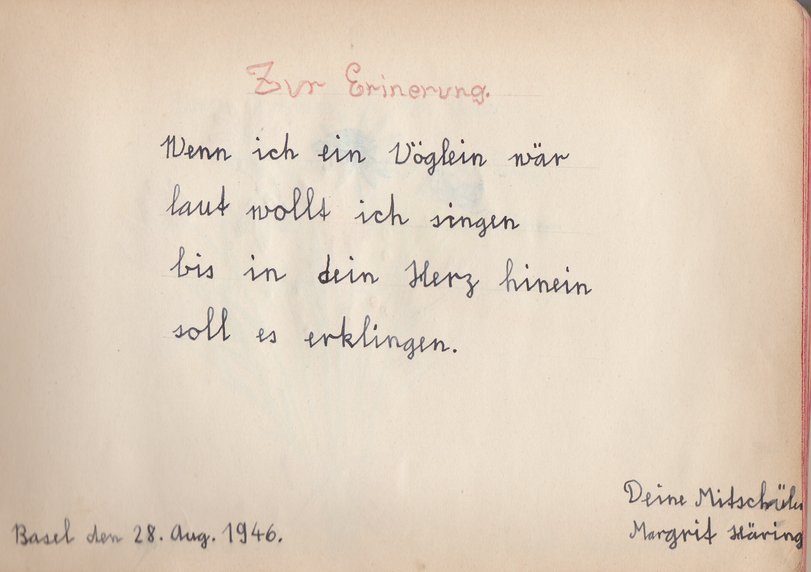 Zur Erinerung.
Wenn ich ein Vöglein wär
laut wollt ich singen
bis in dein Herz hinein
soll es erklingen.
Deine Mitschül
Basel den 28. Aug. 1946.
Margrit Häring